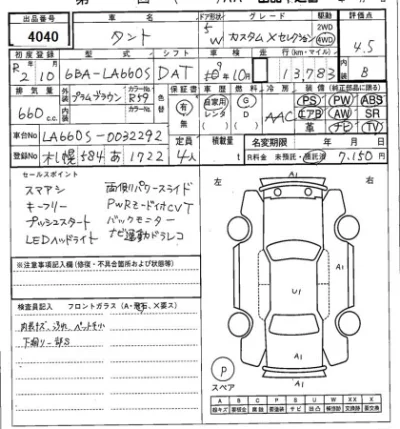 出品番号 車名 ドア形状 グレード 駆動 評価点
4040 タント 5 W カスタムXセレクション 2WD 4WD 4.5
初度登録 型式 シフト 車検 走行(km・マイル) 内装
R2 10 6BA-LA660S DAT 9年10月 13,783 B
排気量 外装 プラムブラウン カラーNo. R59 色替 保証書 車歴 燃料 冷房 装備(純正部品に限る)
660 c.c. 内装 カラーNo. 有 無 自家用 レンタ G D AAC PS PW ABS
エアB AW SR
革 ナビ TV
車台No LA660S-0032292 定員 積載量 名変期限 年 月 日
登録No 札幌 584 あ 1722 4人 t R料金 未預託・預託済 7,150円
セールスポイント
スマアシ 両側パワースライド
キーフリー PWRモード付CVT
プッシュスタート バックモニター
LEDヘッドライト ナビ連動ドラレコ
※注意事項記入欄(修復・不具合箇所および状態等)
検査員記入 フロントガラス(A・飛石、X要ス)
下廻り一部S
左 右
A1
A1
U1
A1
A1
P
スペア
A B C P S U W X XX